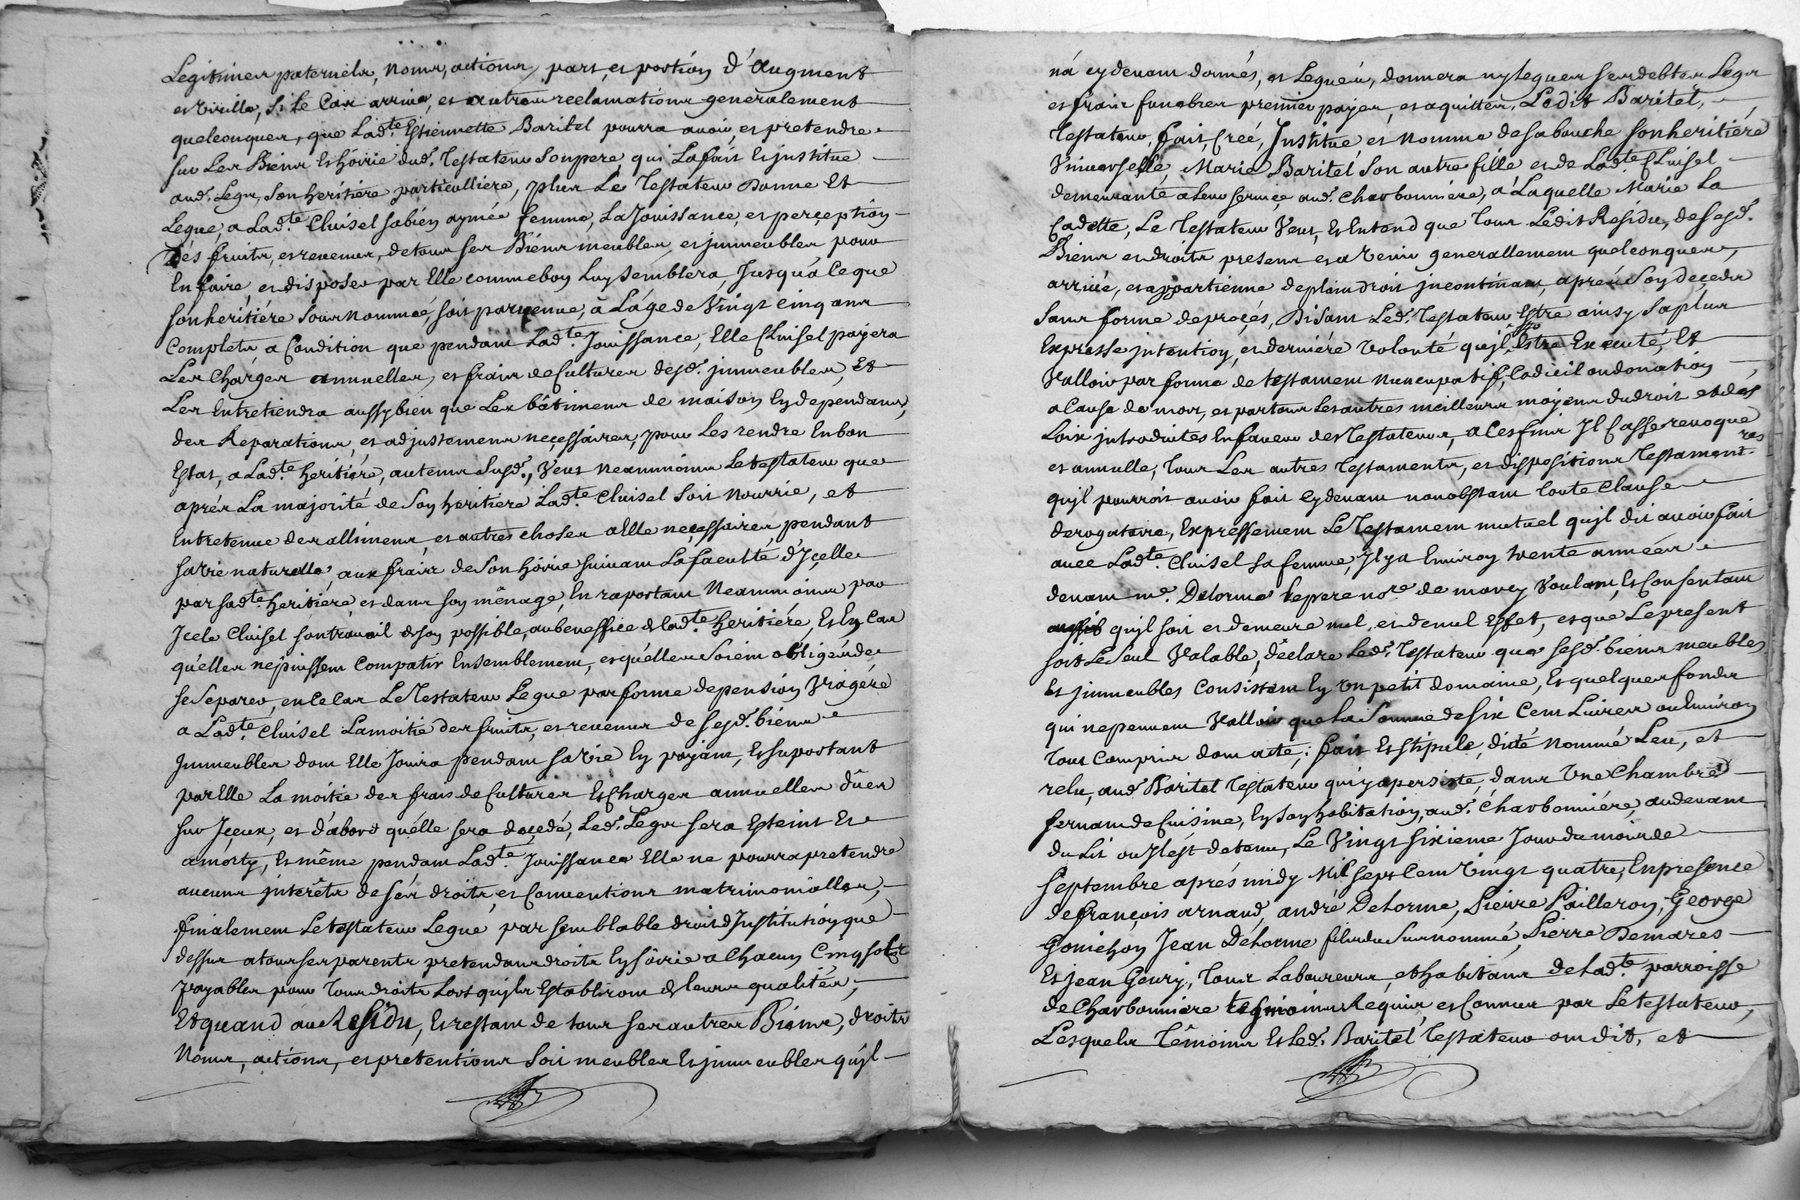 Legitimes paternels, noms, actions, part, et portion d'augment
et virille, si le cas arrive, et autres reclamations generalement
quelconques, que lad.te Estiennette Baritel pourra avoir et pretendre
sur les Biens et hoirie dud. Testateur son pere, qui la fait et institue
aud. Legs, son heritiére particulliere, plus Le Testateur Donne Et
Legue, a Lad.te Cluisel sa bien aymée femme, La Jouissance, et perçeption
Dés fruits, et revenus, de tous ses Biens meubles, et jmmeubles pour
En faire et disposer par Elle comme bon luy semblera, Jusqu'a ce que
son heritiére sous nommée, soit parvenue, à L'age de Vingt cinq ans
Complets, a Condition que pendant Lad.te Jouissance, Elle Cluisel payera
Les Charges annuelles, et frais de Cultures desd. jmmeubles, Et
Les Entretiendra aussy bien que Les bâtimens de maison En dependans,
des Reparations, et adjustemens neçessaires, pour Les rendre En bon
Estat, a Lad.te heritiére, au tems susd., Veut neanmoins Le testateur que
aprés La majorité de Son heritiere Lad.te Cluisel soit Nourrie, et
Entretenue des allimens, et autres choses a Elle neçessaires, pendant
sa vie naturelle, aux frais de son hoirie suivant La faculté d'Jçelle
par sad.te heritiére, et dans son mênage, En raportant Neanmoins par
Jcele Cluisel son travail de son possible, au beneffice de lad.te heritiére, Et En Cas
qu'elles ne puissent Compatir Ensemblement, et qu'elles soient obligées de
se separer, en ce Cas Le Testateur Legue par forme de pension Viagére
a Lad.te Cluisel La moitié des fruits, et revenus de sesd. biens
Jmmeubles dont Elle Jouira pendant sa vie En payant, Et suportant
par Elle La moitié des frais de Cultures Et Charges annuelles dûes
sur Jçeux, et d'abord qu'elle sera deçedé, Led. Legs sera Esteint Et
amorty, Et même pendant Lad.te Jouissance Elle ne pourra pretendre
aucuns jnterêts de sés droits, et Conventions matrimonialles,
finalement Le testateur Legue par semblable droit d'Jnstitution que
dessus a tous ses parents pretendans droits En so hoirie a Chacun Cinq sols
payables pour tous droits Lors qu'jls Establiront de leurs qualités,
Et quand au Residu, Et restant de tous ses autres Biens, droits
Noms, actions, et pretentions soit meubles Et jmmeubles qu'jl
n'a cy devant donnés, et Legués, donnera ny leguera ses debtes Legs
et frais funebres premier payés, et aquittés, Ledit Baritel,
Testateur, fait, Creé, Jnstitue et nomme de sa bouche son heritiére
Vniverselle, Marie Baritel son autre fille et de Lad.te Cluisel
demeurante a leur service aud. Charbonniére, a Laquelle Marie La
Cadette, Le Testateur Veut, Et Entend que tout Ledit Residu, de sesd.
Biens et droits presens et a Venir generallement quelconques,
arrive, et appartienne de plein droit jncontinant, aprés son deçeds
sans forme de proçés, Disant Led. Testateur Estre ainsy sa plus
Expresse jntention, et derniére volonté qu'jl Estre Executé, Et
Valloir par forme de testament nuncupatif, Codicil ou donation
a Cause de mort, et par tous les autres meilleurs moyens du droit et des
Loix jntroduites En faveur des Testateurs, a Ces fins Jl Casse revoque
et annulle, tous Les autres testaments, et dispositions Testament.res
qu'jl pourroit avoir fait Cydevant nonobstant toute Clause
derogatoire, Expressement Le Testament mutuel qu'jl dit avoir fait
avec Lad.te Cluisel sa femme, Jl y a Environ trente années
devant me. Delorme le pere no.re de marcy Voulant, Et Consentant
qu'jl soit et demeure nul, et de nul Effet, et que Le present
soit Le Seul Valable, déclare Led. Testateur que sesd. biens meubles
Et jmmeubles Consistent En Vn petit domaine, Et quelques fonds
qui ne peuvent Valloir que La somme de six Cens Livres ou Environ
tout Compris dont acte; fait Et Stipulé, dité Nommé Leu, et
releu, aud. Baritel Testateur qui y a persisté, dans Vne Chambre
servant de Cuisine, En son habitation, aud. Charbonniére, au devant
du Lit ou Jl est detenu, Le Vingt sixieme Jour du mois de
Septembre aprés midy Mil sept Cent Vingt quatre, En presence
de françois arnaud, andré Delorme, Pierre Pailleron, George
Gonichon Jean Délorme fils du surnommé, Pierre Demares
Et Jean Geury, tous Laboureurs, et habitans de Lad.te parroisse
de Charbonniere tesmoins Requis et Connus par Le testateur,
Lesquels Têmoins Et Led. Baritel Testateur ont dit, et